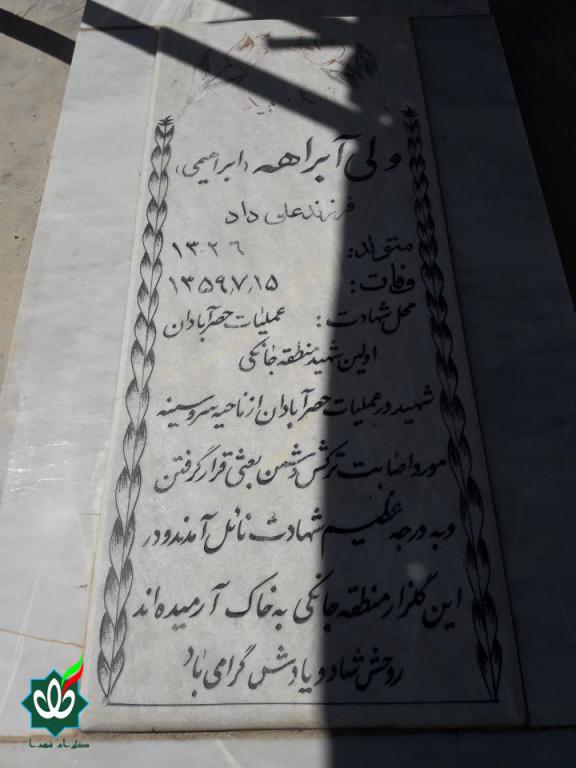 ولی آبراهه (ابراهیمی)
فرزند علی داد
متولد: ۱۳۲۶
وفات: ۱۳۵۹/۷/۱۵
محل شهادت: عملیات حصر آبادان
اولین شهید منطقه جانکی
شهید در عملیات حصر آبادان از ناحیه سر و سینه
مورد اصابت ترکش دشمن بعثی قرار گرفتن
و به درجه عظیم شهادت نائل آمدند و در
این گلزار منطقه جانکی به خاک آرمیده اند
روحش شاد و یادش گرامی باد
گلزار شهدا